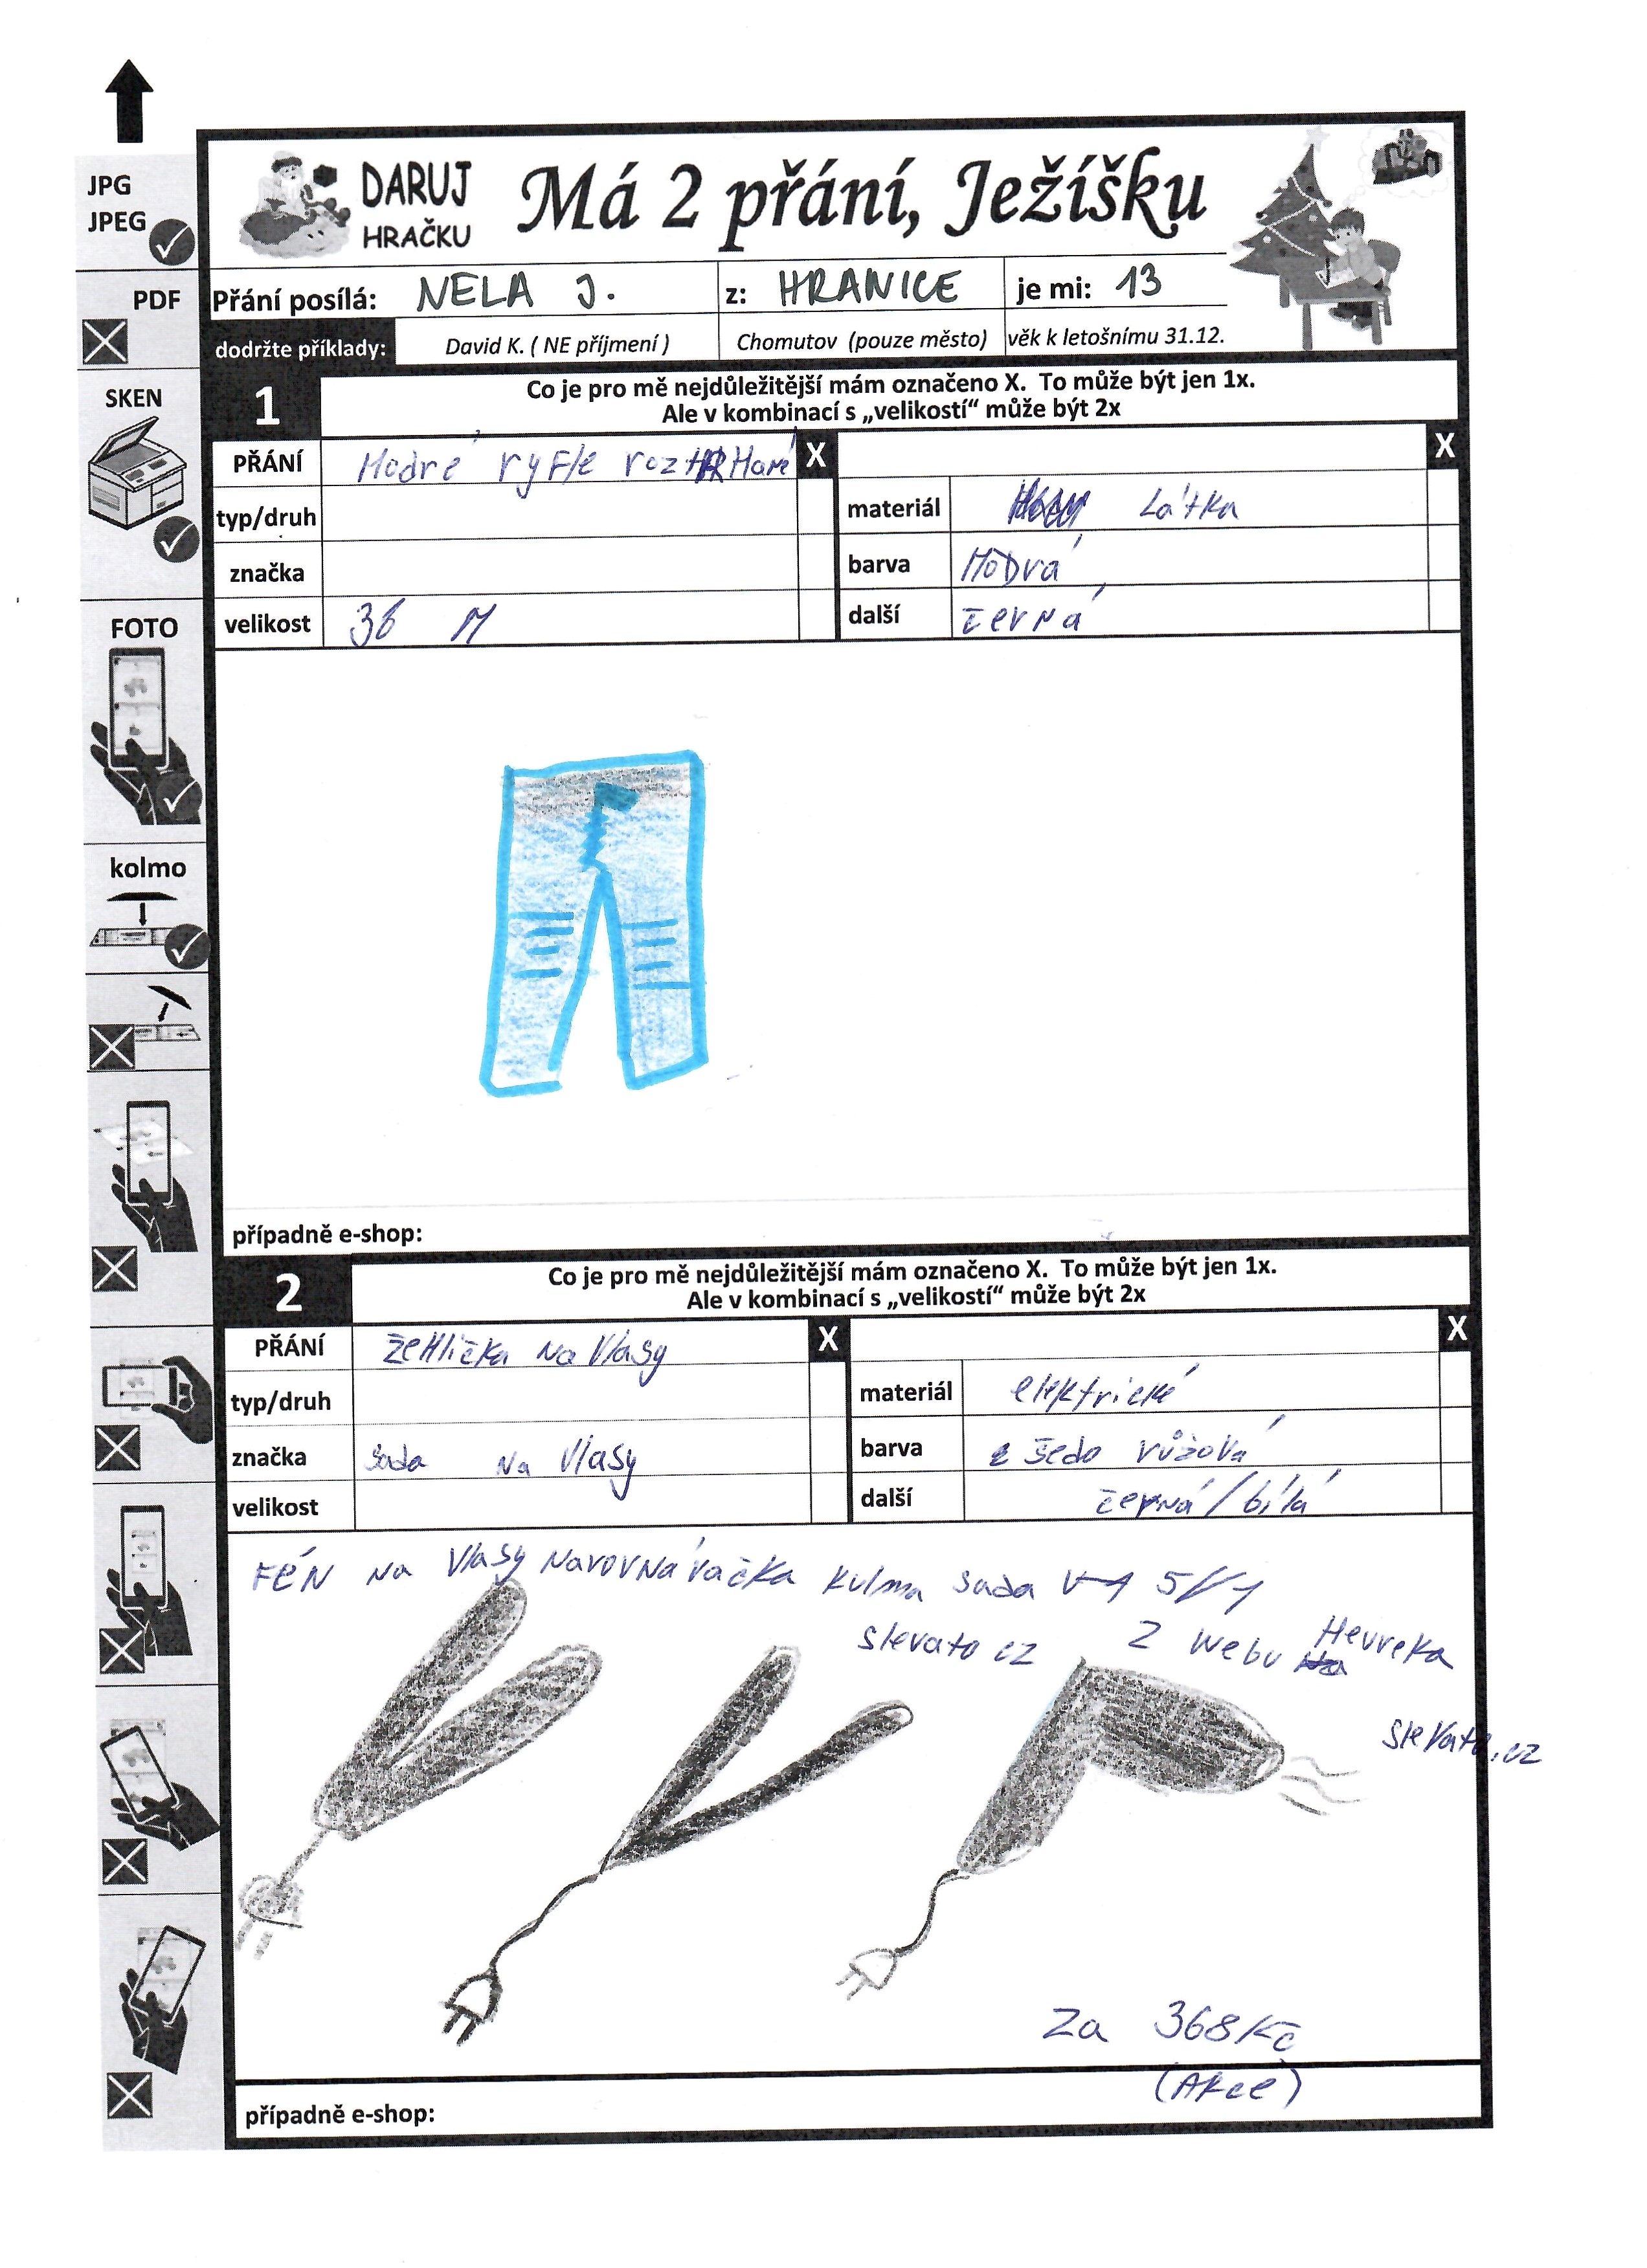 JPG
JPEG
PDF
SKEN
FOTO
kolmo
DARUJ
HRAČKU
Má 2 přání, Ježíšku
Přání posílá: NELA J. z: HRANICE je mi: 13
dodržte příklady: David K. ( NE příjmení ) Chomutov (pouze město) věk k letošnímu 31.12.
1
Co je pro mě nejdůležitější mám označeno X. To může být jen 1x.
Ale v kombinací s „velikostí“ může být 2x
PŘÁNÍ Modré ryFle roztrHané X X
typ/druh materiál Látka
značka barva Modrá
velikost 36 M další černá
případně e-shop:
2
Co je pro mě nejdůležitější mám označeno X. To může být jen 1x.
Ale v kombinací s „velikostí“ může být 2x
PŘÁNÍ žeHlička na Vlasy X X
typ/druh materiál elektrické
značka sada na Vlasy barva šedo růžová
velikost další černá/bílá
FéN na Vlasy Narovnávačka kulma sada 5/1
slevato cz z webu Heureka
slevato.cz
Za 368 Kč
(Akce)
případně e-shop: